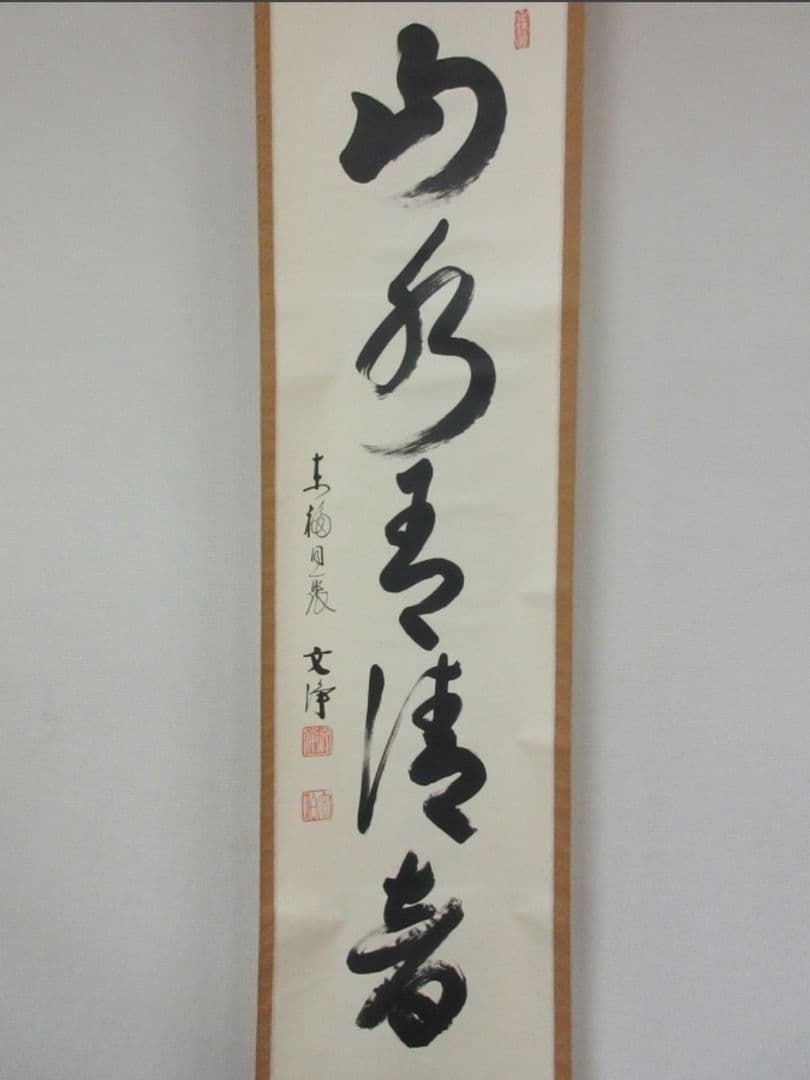 山水有清音
東福同聚 文浄